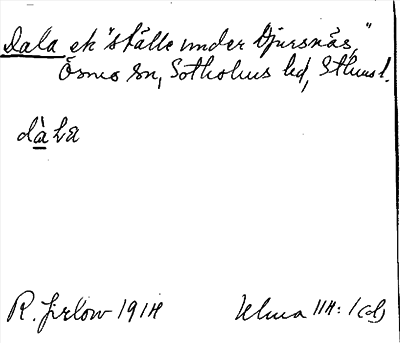 Dala ek "ställe under Djursnäs,"
Ösmo sn, Sotholms hd, Sthms l.
dàla
R. Jirlow 1914 Ulma 114: 1(d)